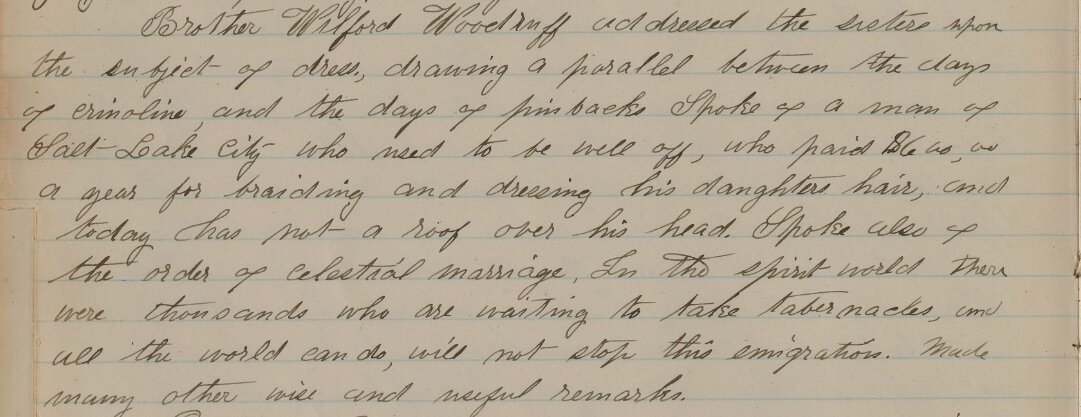 Brother Wilford Woodruff addressed the sisters upon
the subject of dress, drawing a parallel between the days
of crinoline, and the days of pinbacks Spoke of a man of
Salt Lake City who used to be well off, who paid $600,00
a year for braiding and dressing his daughters hair, and
today has not a roof over his head. Spoke also of
the order of celestial marriage. In the spirit world there
were thousands who are waiting to take tabernacles, and
all the world can do, will not stop this emigration. Made
many other wise and useful remarks.